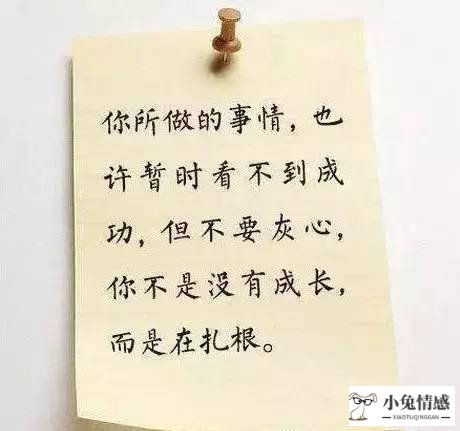 你所做的事情，也
许暂时看不到成
功，但不要灰心，
你不是没有成长，
而是在扎根。
小兔情感
XIAOTUQINGGAN